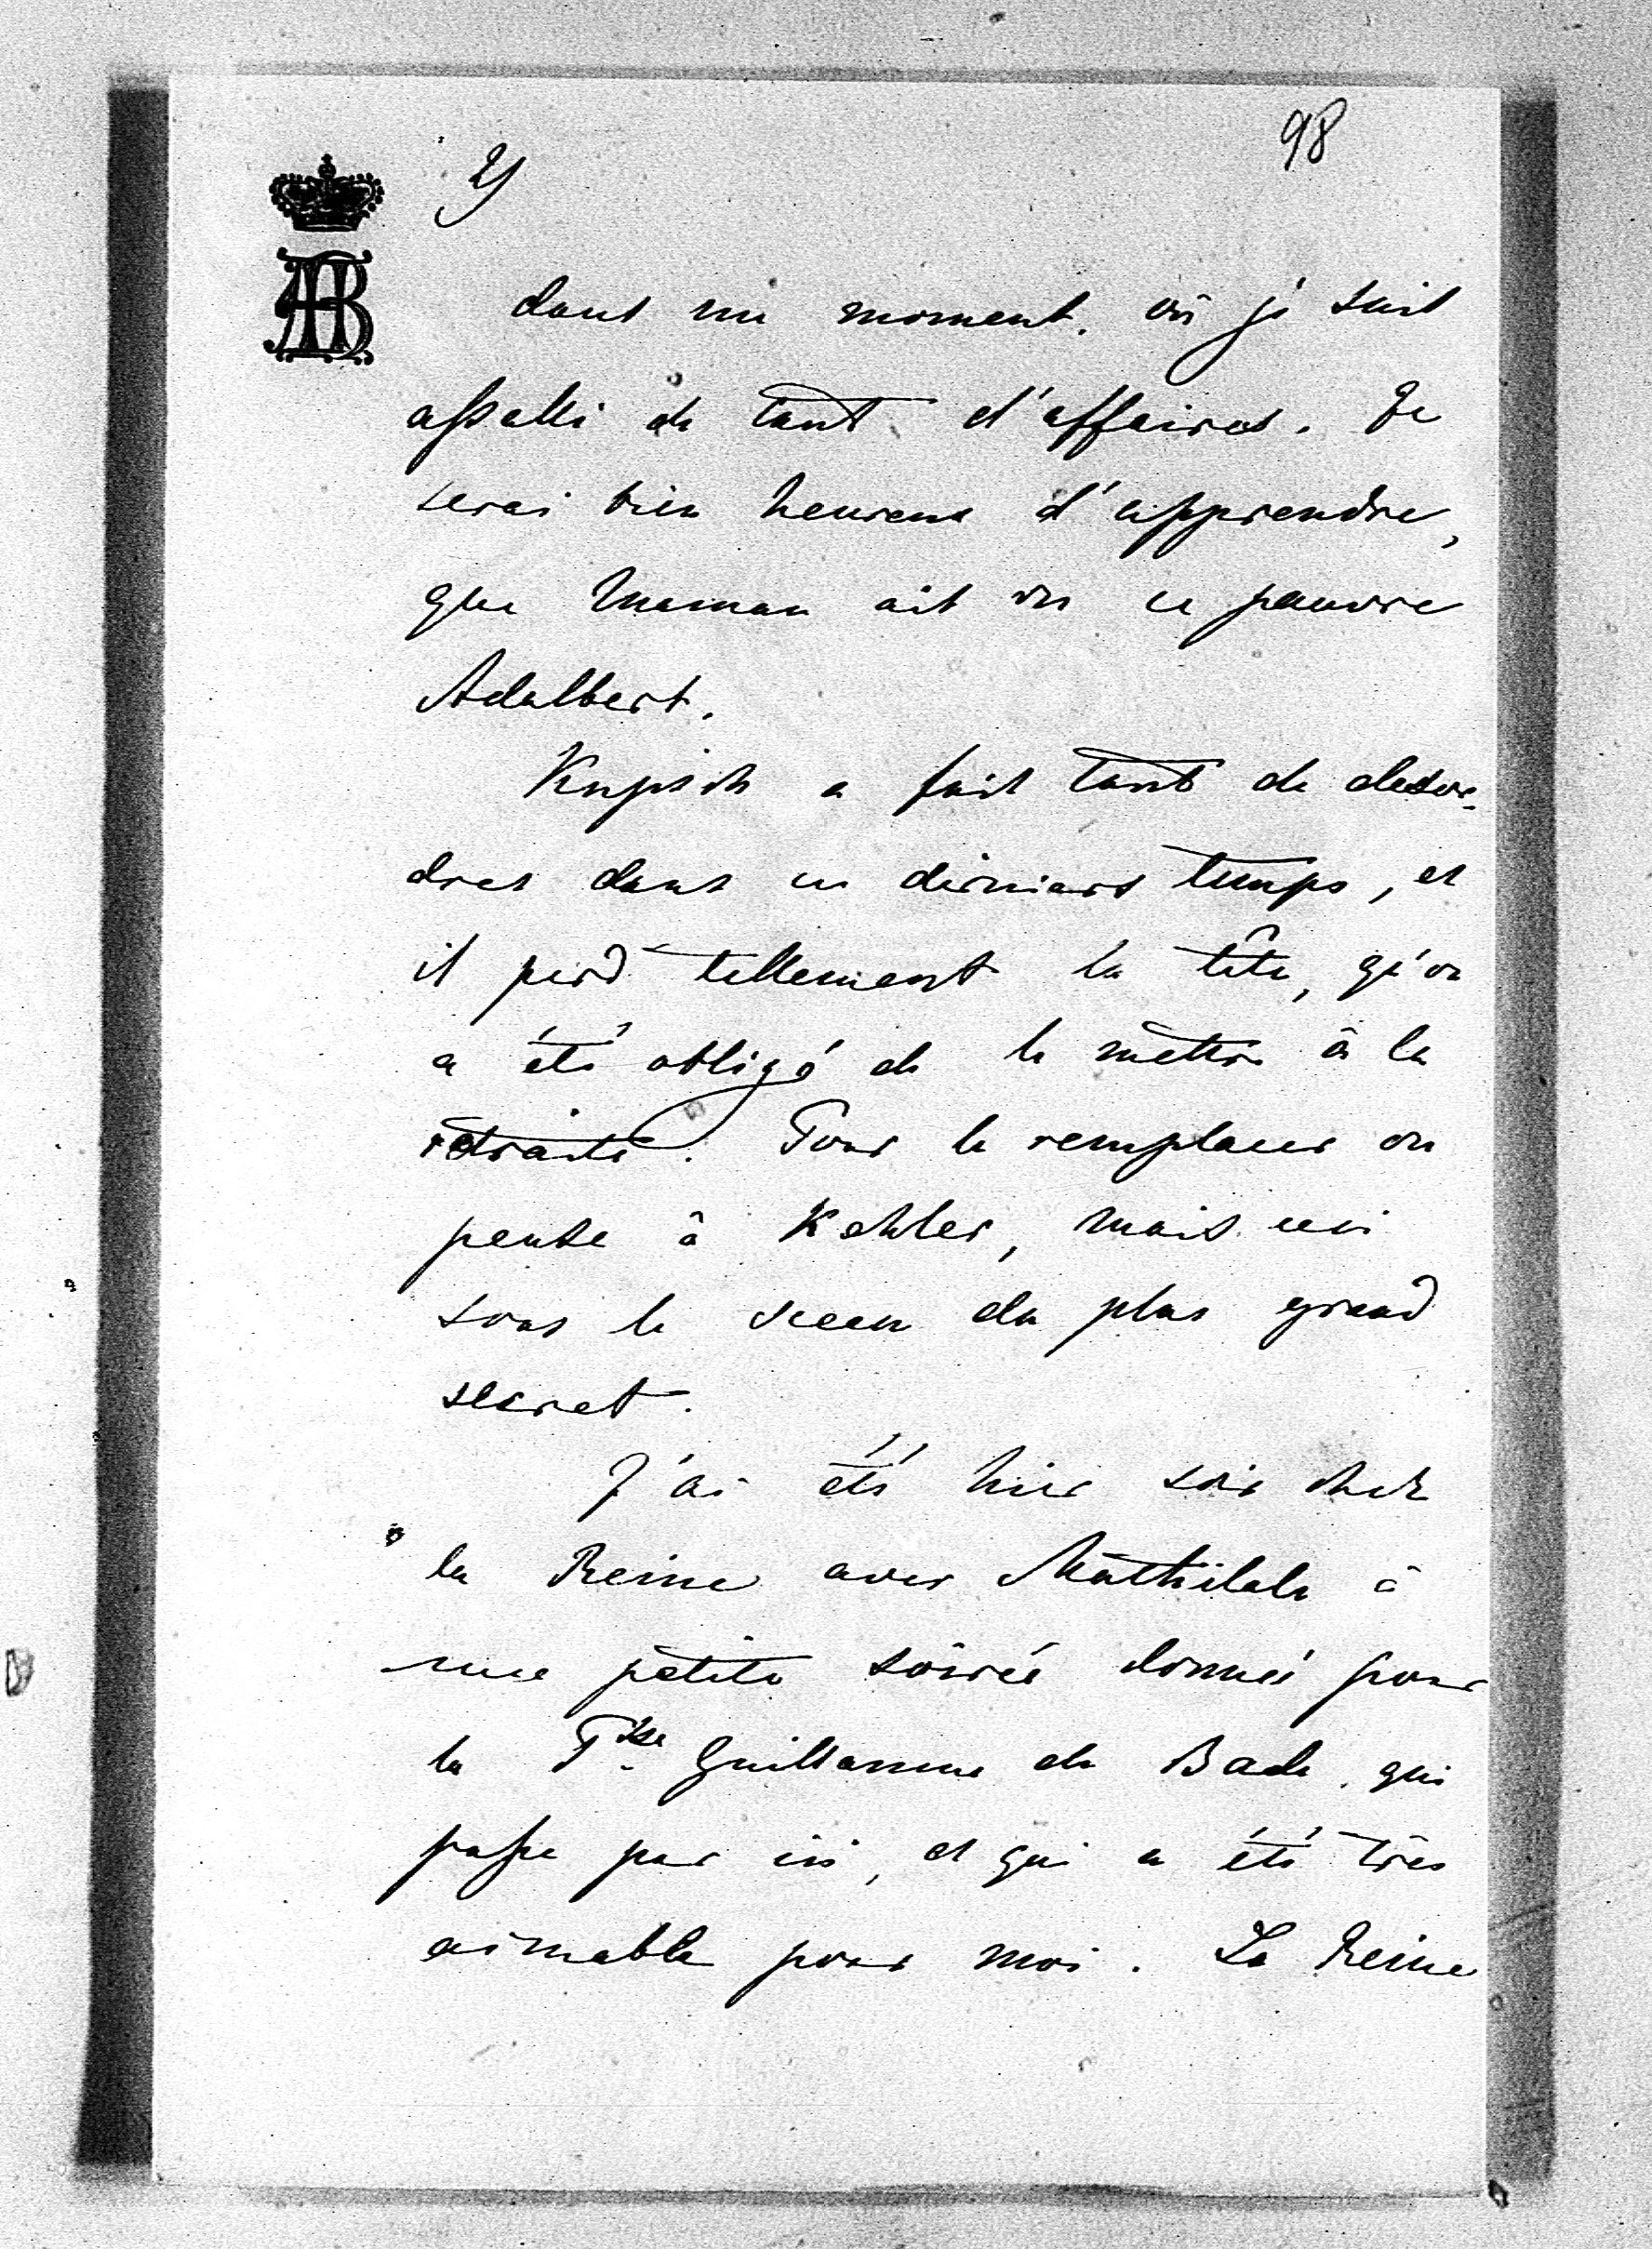 98
2)
AB
dans un moment où je suis
assalli de tant d'affaires. Je
serai bien heureux d'apprendre,
que Maman ait vu ce pauvre
Adalbert.
a fait tant de desor-
dres dans ces derniers temps, et
il perd tellement la tête, qu'on
a été obligé de le mettre à la
retraite. Pour le remplacer on
pense à Kohler, mais ceci
sous le sceau du plus grand
secret.
J'ai été hier soir chez
la Reine avec Mathilde à
une petite soirée donnée pour
la Psse Guillaume de Bade qui
passe par ici, et qui a été très
aimable pour moi. La Reine